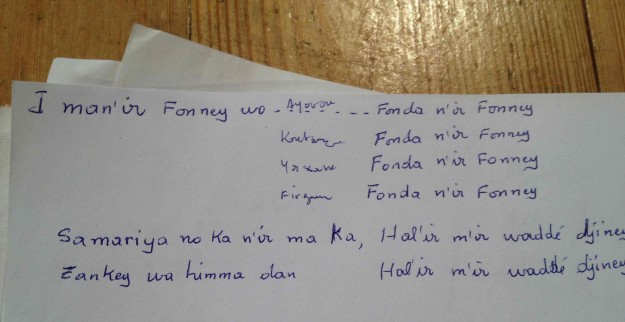 I man'ir Fonney wo - Ayorou - - - Fonda n'ir Fonney
Fonda n'ir Fonney
Fonda n'ir Fonney
Firgoun Fonda n'ir Fonney
Samariya no ka n'ir ma ka, Hal'ir m'ir waddé djiney
Zankey wa himma dan Hal'ir m'ir waddé djiney